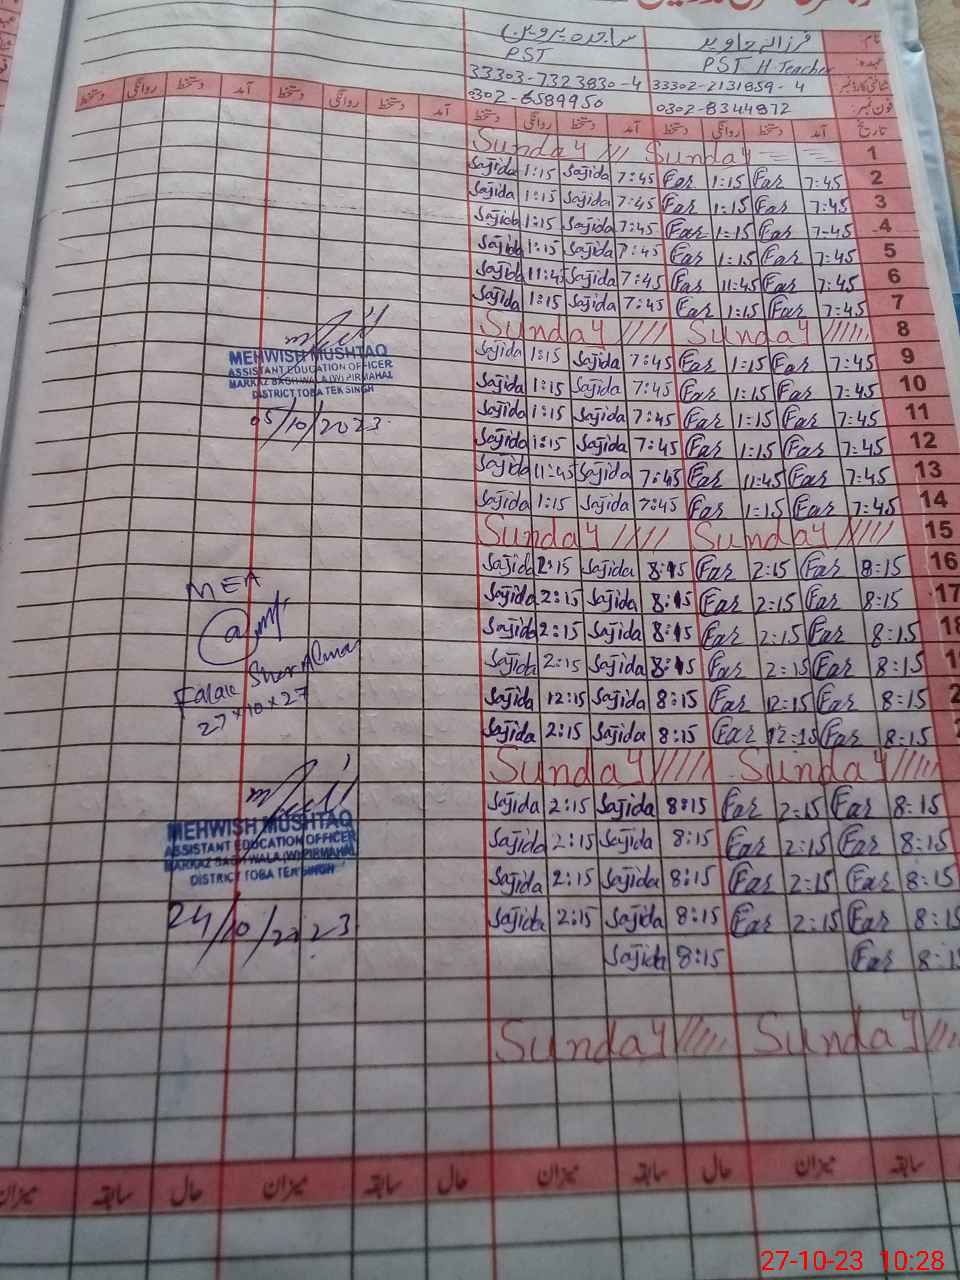 نام: فرزانہ جاوید ساجدہ پروین
عہدہ: PST H Teacher PST
شناختی کارڈ نمبر 33302-2131859-4 33303-7323830-4
فون نمبر: 0302-8344872 0302-6589950
تاریخ آمد دستخط روانگی دستخط آمد دستخط روانگی دستخط آمد دستخط روانگی دستخط آمد دستخط روانگی دستخط
Sunday Sunday 1
Sajida 1:15 Sajida 7:45 Far 1:15 Far 7:45 2
Sajida 1:15 Sajida 7:45 Far 1:15 Far 7:45 3
Sajida 1:15 Sajida 7:45 Far 1:15 Far 7:45 4
Sajida 1:15 Sajida 7:45 Far 1:15 Far 7:45 5
Sajida 11:45 Sajida 7:45 Far 11:45 Far 7:45 6
Sajida 1:15 Sajida 7:45 Far 1:15 Far 7:45 7
Sunday Sunday 8
Sajida 1:15 Sajida 7:45 Far 1:15 Far 7:45 9
Sajida 1:15 Sajida 7:45 Far 1:15 Far 7:45 10
Sajida 1:15 Sajida 7:45 Far 1:15 Far 7:45 11
Sajida 1:15 Sajida 7:45 Far 1:15 Far 7:45 12
Sajida 11:45 Sajida 7:45 Far 11:45 Far 7:45 13
Sajida 1:15 Sajida 7:45 Far 1:15 Far 7:45 14
Sunday Sunday 15
Sajida 2:15 Sajida 8:15 Far 2:15 Far 8:15 16
Sajida 2:15 Sajida 8:15 Far 2:15 Far 8:15 17
Sajida 2:15 Sajida 8:15 Far 2:15 Far 8:15 18
Sajida 2:15 Sajida 8:15 Far 2:15 Far 8:15
Sajida 12:15 Sajida 8:15 Far 12:15 Far 8:15
Sajida 2:15 Sajida 8:15 Far 12:15 Far 8:15
Sunday Sunday
Sajida 2:15 Sajida 8:15 Far 2:15 Far 8:15
Sajida 2:15 Sajida 8:15 Far 2:15 Far 8:15
Sajida 2:15 Sajida 8:15 Far 2:15 Far 8:15
Sajida 2:15 Sajida 8:15 Far 2:15 Far 8:15
Sajida 8:15 Far 8:15
Sunday Sunday
MEHWISH MUSHTAQ
ASSISTANT EDUCATION OFFICER
MARKAZ BAGH WALA (W) PIRMAHAL
DISTRICT TOBA TEK SINGH
05/10/2023
MEA
Falak
27×10×27
MEHWISH MUSHTAQ
ASSISTANT EDUCATION OFFICER
MARKAZ BAGH WALA (W) PIRMAHAL
DISTRICT TOBA TEK SINGH
24/10/2023
سابقہ میزان حال سابقہ میزان حال سابقہ میزان حال سابقہ میزان
27-10-23 10:28